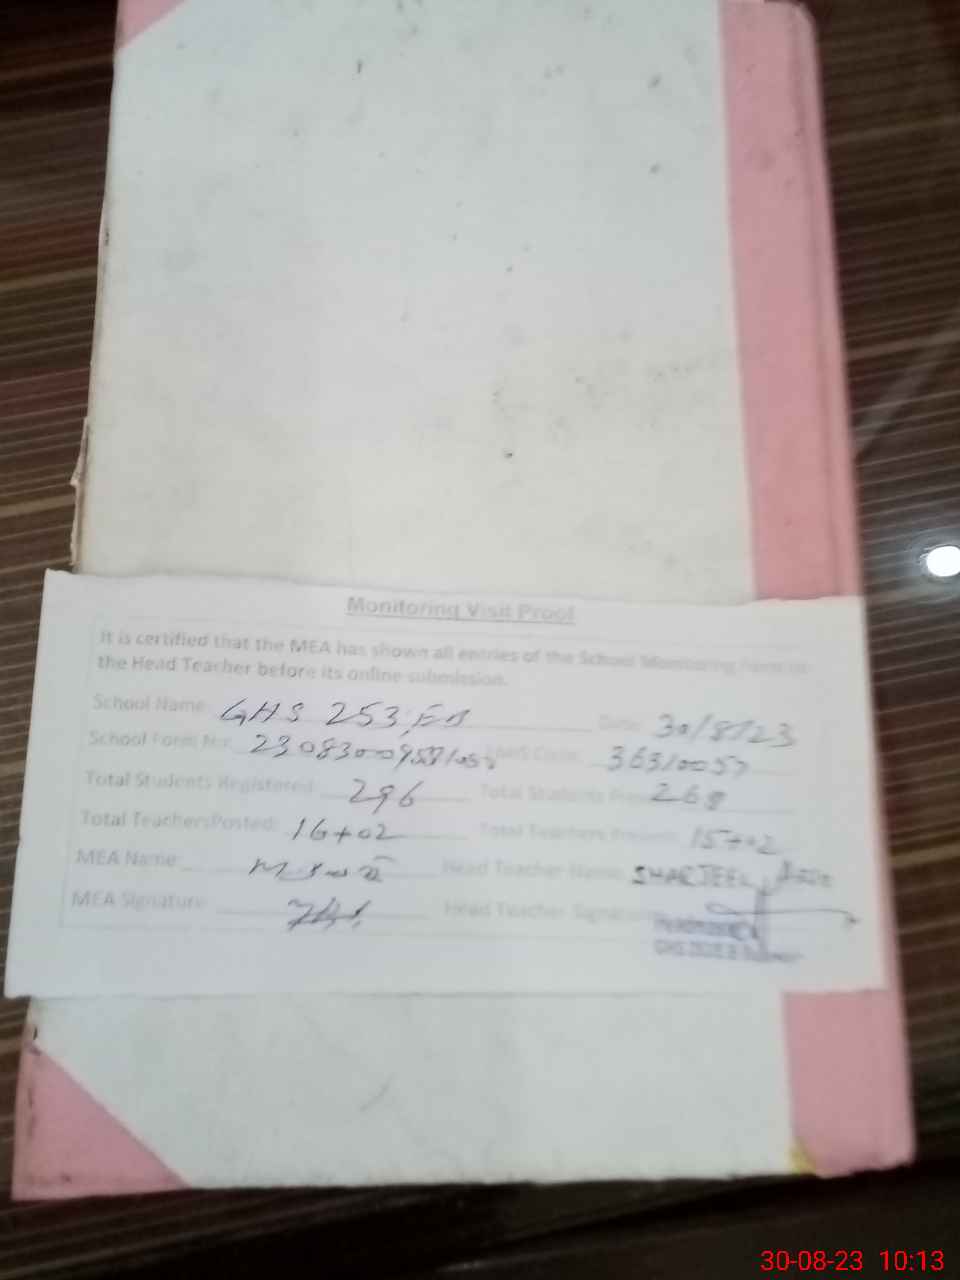 Monitoring Visit Proof
It is certified that the MEA has shown all entries of the School Monitoring
the Head Teacher before its online submission.
School Name: GHS 253, EB Date: 30/8/23
School Form No: Code: 36310057
Total Students Registered: 296 Total Students 268
Total TeachersPosted: 16+02 Total Teachers Present: 15+02
MEA Name: Head Teacher Name: SHARJEEL
MEA Signature: Head Teacher Signature
30-08-23 10:13